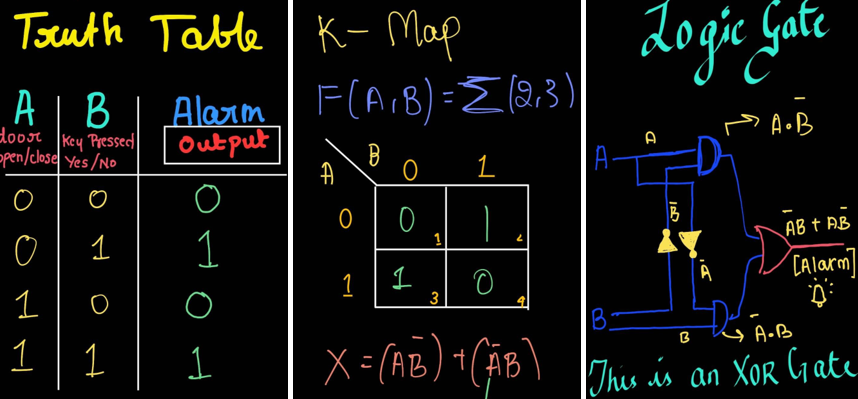 Truth Table
A B Alarm
door open/close
Key Pressed Yes/No
Output
0 0 0
0 1 1
1 0 0
1 1 1
K- Map
F(A,B) = Σ(2,3)
B
A
0 1
0 0 1 1 2
1 1 3 0 4
X = (AB̅) + (A̅B)
Logic Gate
A A A·B̅
B̅
A̅
A̅B + AB̅
[Alarm]
B B A̅·B
This is an XOR Gate